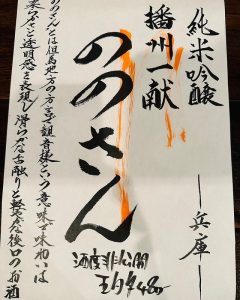 純米吟醸
―兵庫―
播州一献
ののさん
酒度非公開
ののさんとは但馬地方の方言で観音様という意味で味わいは
柔らかさと透明感を表現し滑らかな舌触りと軽やかな後口のお酒